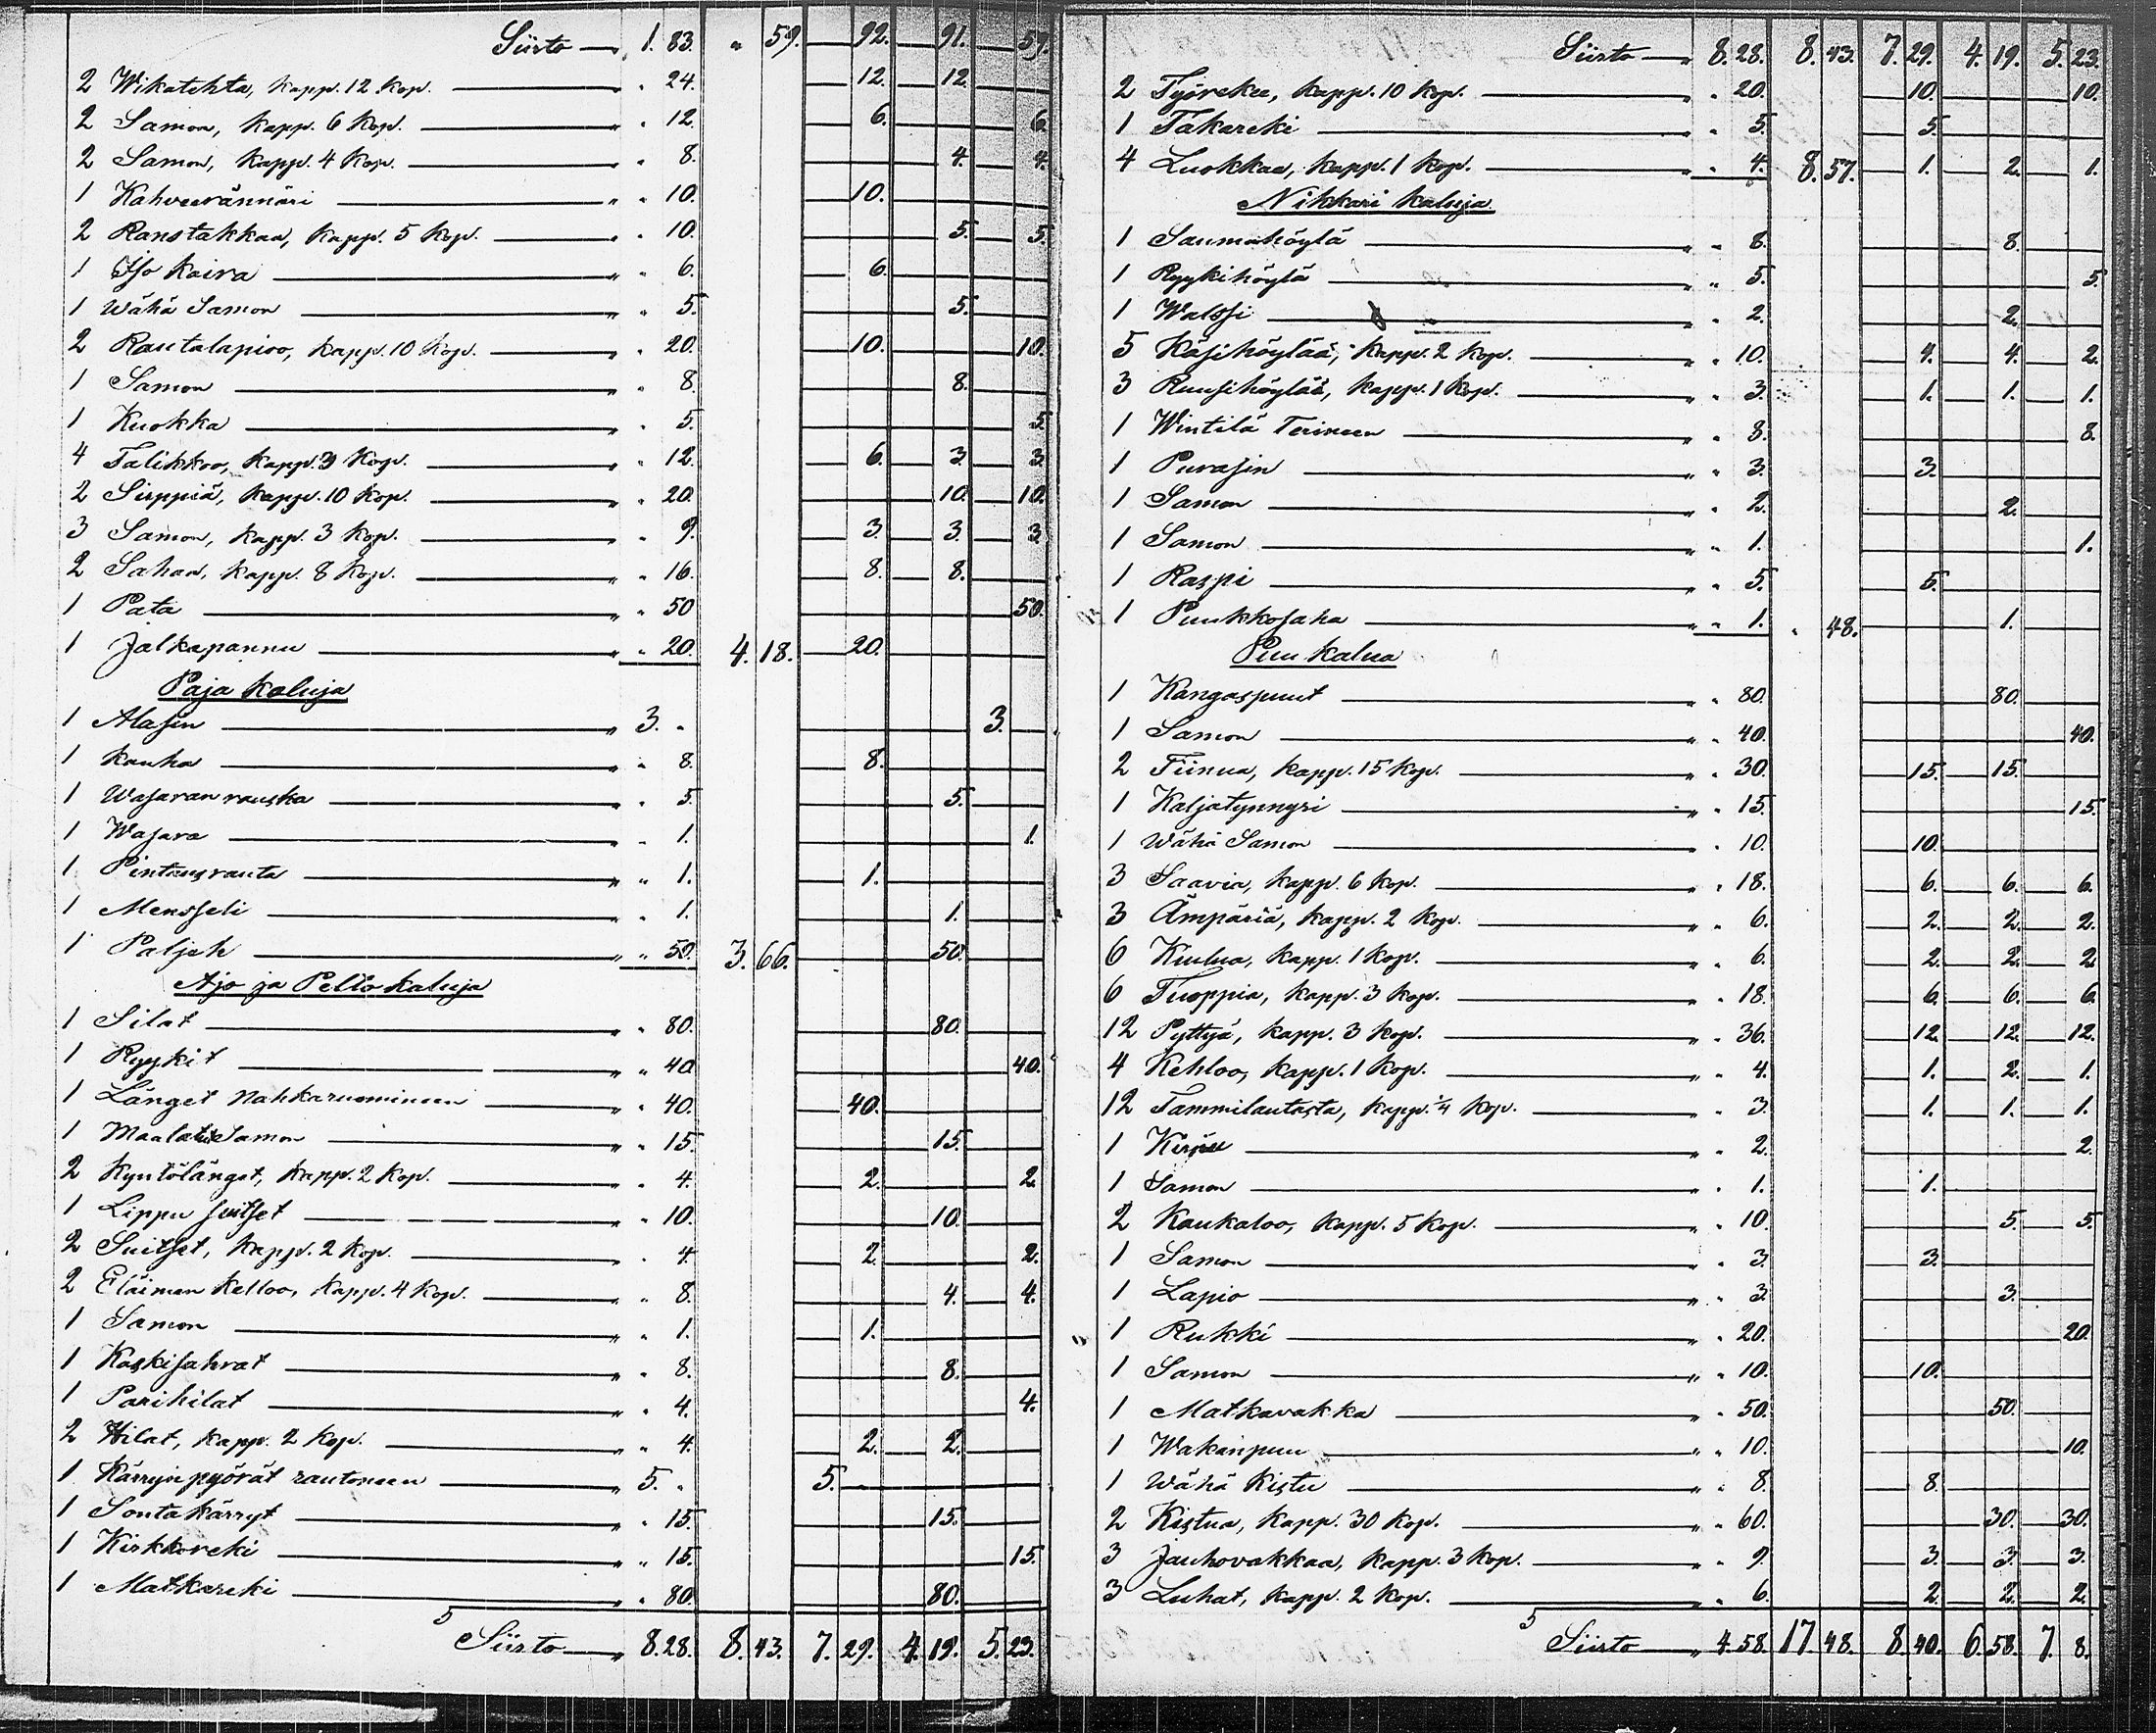 Siirto — 1. 83. " 59. 92. 91. 59.
2 Wikatehta, kapp. 12 kop. — " 24. 12. 12.
2 Samon, kapp. 6 kop. — " 12. 6. 6.
2 Samon, kapp. 4 kop. — " 8. 4. 4.
1 Kahveerännäri — " 10. 10.
2 Ranstakkaa, kapp. 5 kop. — " 10. 5. 5.
1 Iso kaira — " 6. 6.
1 Wähä Samon — " 5. 5.
2 Rautalapioo, kapp. 10 kop. — " 20. 10. 10.
1 Samon — " 8. 8.
1 Kuokka — " 5. 5.
4 Talikkoo, kapp. 3 kop. — " 12. 6. 3. 3.
2 Sirppiä, kapp. 10 kop. — " 20. 10. 10.
3 Samon, kapp. 3 kop. — " 9. 3. 3. 3.
2 Sahaa, kapp. 8 kop. — " 16. 8. 8.
1 Pata — " 50 50.
1 Jalkapannu — " 20. 4. 18. 20.
Paja kaluja
1 Alasin — 3. " 3.
1 Kauha — " 8. 8.
1 Wasaran rauska — " 5. 5.
1 Wasara — " 1. 1.
1 Pintausrauta — " 1. 1.
1 Mensseli — " 1. 1.
1 Paljeh — " 50. 3. 66. 50.
Ajo ja Pelto kaluja
1 Silat — " 80. 80.
1 Ryykit — " 40 40.
1 Länget Nahkaruomineen — " 40. 40.
1 Maalatut Samon — " 15. 15.
2 Kyntölänget, kapp. 2 kop. — " 4. 2. 2.
1 Lippu suitset — " 10. 10.
2 Suitset, kapp. 2 kop. — " 4. 2. 2.
2 Eläimen kelloo, kapp. 4 kop. — " 8. 4. 4.
1 Samon — " 1. 1.
1 Koskisahrat — " 8. 8.
1 Parihilat — " 4. 4.
2 Hilat, kapp. 2 kop. — " 4. 2. 2.
1 Kärryin pyörät rautoneen — 5. " 5.
1 Sontakärryt — " 15. 15.
1 Kirkkoreki — " 15. 15.
1 Matkareki — " 80. 80.
5 Siirto — 8. 28. 8. 43. 7. 29. 4. 19. 5. 23.
Siirto — 8. 28. 8. 43. 7. 29. 4. 19. 5. 23.
2 Työrekee, kapp. 10 kop. — " 20. 10. 10.
1 Takareki — " 5. 5.
4 Luokkaa, kapp. 1 kop. — " 4. 8. 57. 1. 2. 1.
Nikkari kaluja
1 Saumahöylä — " 8. 8.
1 Ryykihöylä — " 5. 5.
1 Walssi — " 2. 2.
5 Käsihöylää, kapp. 2 kop. — " 10. 4. 4. 2.
3 Ruusihöylää, kapp. 1 kop. — " 3. 1. 1. 1.
1 Wintilä Terineen — " 8. 8.
1 Purasin — " 3. 3.
1 Samon — " 2. 2.
1 Samon — " 1. 1.
1 Raspi — " 5. 5.
1 Puukkosaha — " 1. " 48. 1.
Puu kalua
1 Kangaspuut — " 80. 80.
1 Samon — " 40. 40.
2 Tiinua, kapp. 15 kop. — " 30. 15. 15.
1 Kaljatynnyri — " 15. 15.
1 Wähä Samon — " 10. 10.
3 Saavia, kapp. 6 kop. — " 18. 6. 6. 6.
3 Ämpäriä, kapp. 2 kop. — " 6. 2. 2. 2.
6 Kiulua, kapp. 1 kop. — " 6. 2. 2. 2
6 Tuoppia, kapp. 3 kop. — " 18. 6. 6. 6
12 Pyttyä, kapp. 3 kop. — " 36. 12. 12. 12.
4 Kehloo, kapp. 1 kop. — " 4. 1. 2. 1.
12 Tammilautasta, kapp. 1/4 kop. — " 3. 1. 1. 1.
1 — " 2. 2.
1 Samon — " 1. 1.
2 Kaukaloo, kapp. 5 kop. — " 10. 5. 5.
1 Samon — " 3. 3.
1 Lapio — " 3. 3.
1 Rukki — " 20. 20.
1 Samon — " 10. 10.
1 Matkavakka — " 50. 50.
1 Wakanpuu — " 10. 10.
1 Wähä Kistu — " 8. 8.
2 Kistua, kapp. 30 kop. — " 60. 30. 30.
3 Jauhovakkaa, kapp. 3 kop. — " 9. 3. 3. 3.
3 Luhat, kapp. 2 kop. — " 6. 2. 2. 2.
5 Siirto — 4. 58. 17. 48. 8. 40. 6. 58. 7. 8.